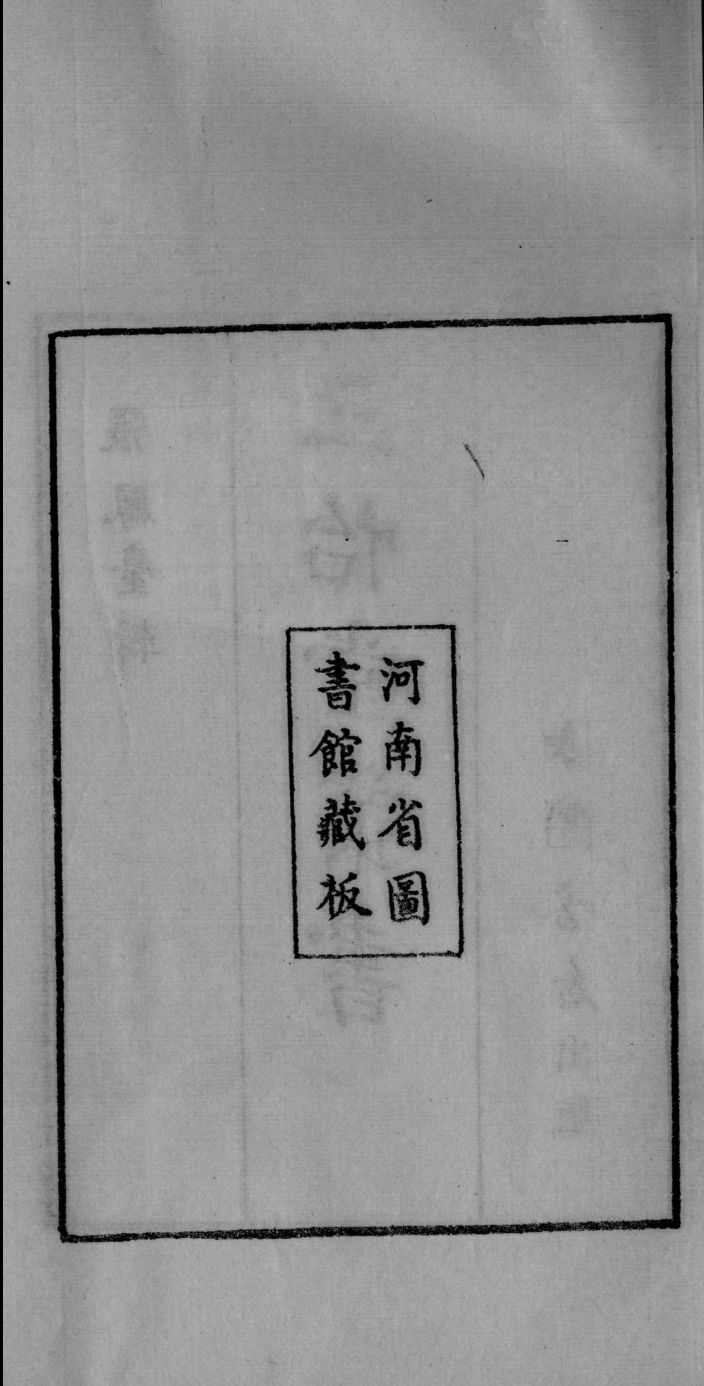 河南省圖
書館藏板